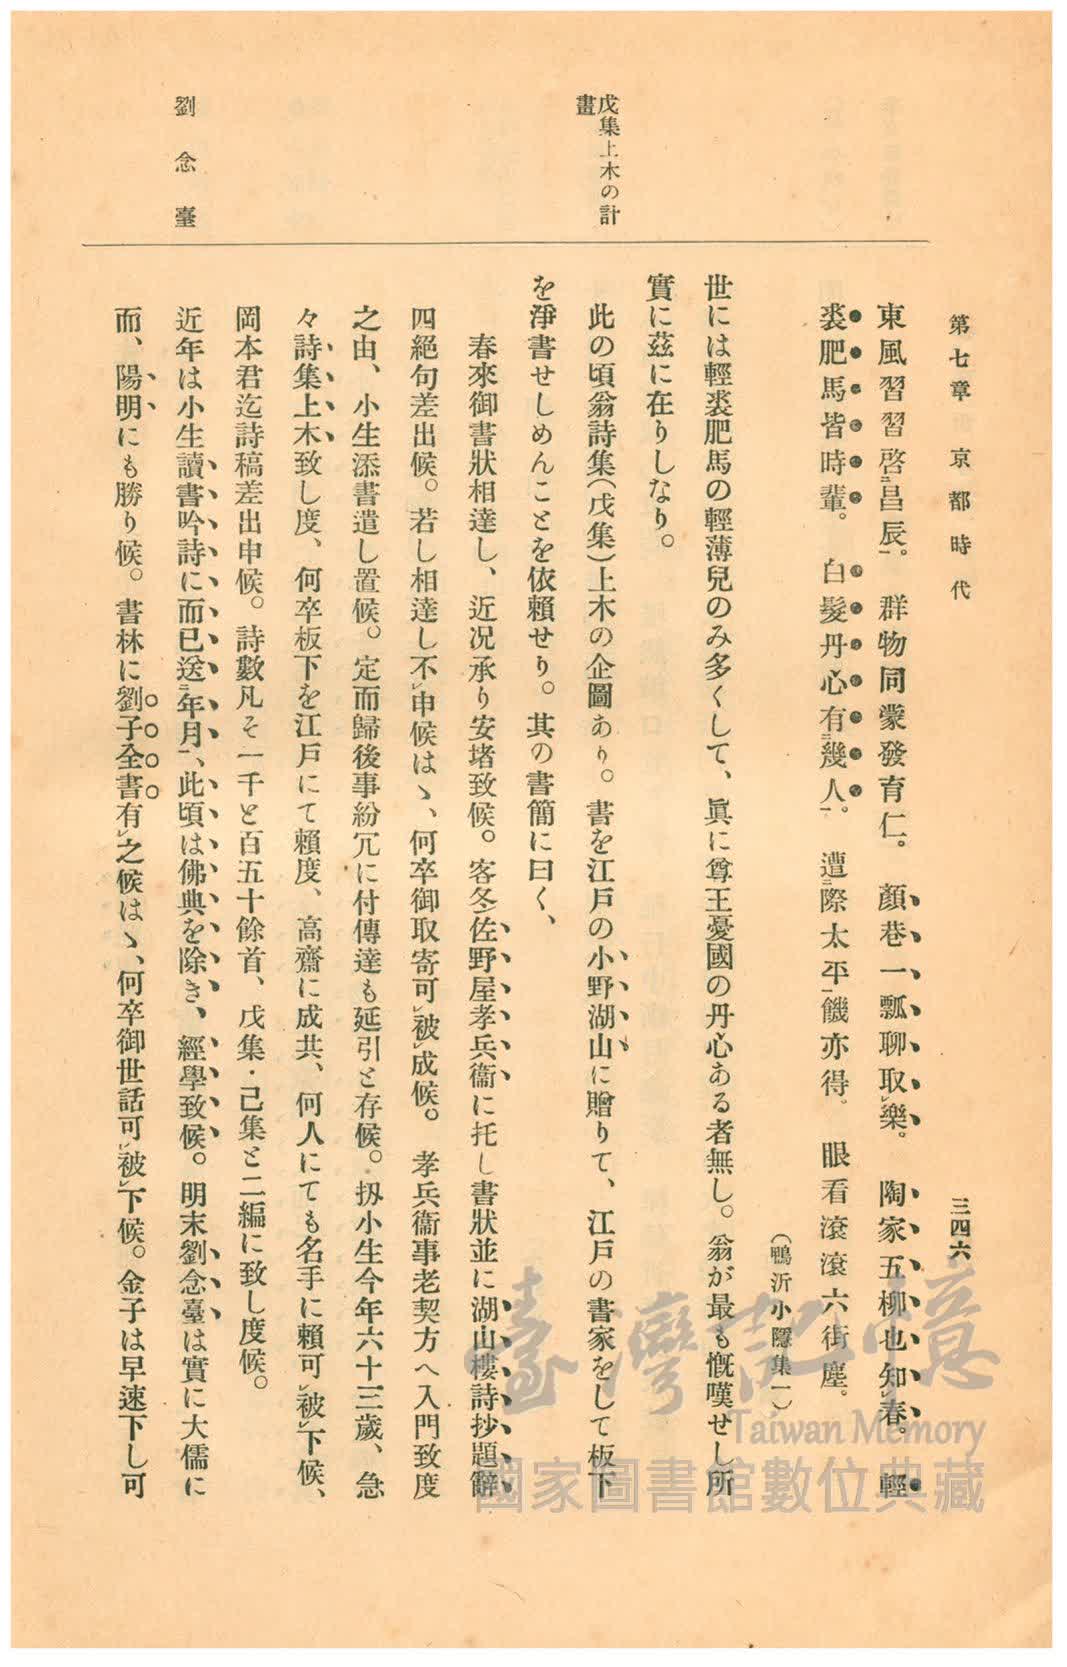 第七章 京都時代
三四六
東風習習啓二昌辰一。 群物同蒙發育仁。 顏巷一瓢聊取レ樂。 陶家五柳也知レ春。 輕
裘肥馬皆時輩。 白髮丹心有二幾人一。 遭二際太平一饑亦得。 眼看滾滾六街塵。
(鴨沂小隱集一)
世には輕裘肥馬の輕薄兒のみ多くして、眞に尊王憂國の丹心ある者無し。翁が最も慨嘆せし所
實に茲に在りしなり。
戊集上木の計
畫
此の頃翁詩集(戊集)上木の企圖あり。書を江戸の小野湖山に贈りて、江戸の書家をして板下
を淨書せしめんことを依賴せり。其の書簡に曰く、
春來御書狀相達し、近況承り安堵致候。客冬佐野屋孝兵衞に托し書狀並に湖山樓詩抄題辭
四絕句差出候。若し相達し不レ申候はゝ、何卒御取寄可レ被レ成候。 孝兵衞事老契方へ入門致度
之由、小生添書遣し置候。定而歸後事紛冗に付傳達も延引と存候。扨小生今年六十三歲、急
々詩集上木致し度、何卒板下を江戸にて賴度、高齋に成共、何人にても名手に賴可レ被レ下候、
岡本君迄詩稿差出申候。詩數凡そ一千と百五十餘首、戊集・己集と二編に致し度候。
劉念臺
近年は小生讀書吟詩に而已送二年月一、此頃は佛典を除き、經學致候。明末劉念臺は實に大儒に
而、陽明にも勝り候。書林に劉子全書有レ之候はゝ、何卒御世話可レ被レ下候。金子は早速下し可
臺灣記憶
Taiwan Memory
國家圖書館數位典藏